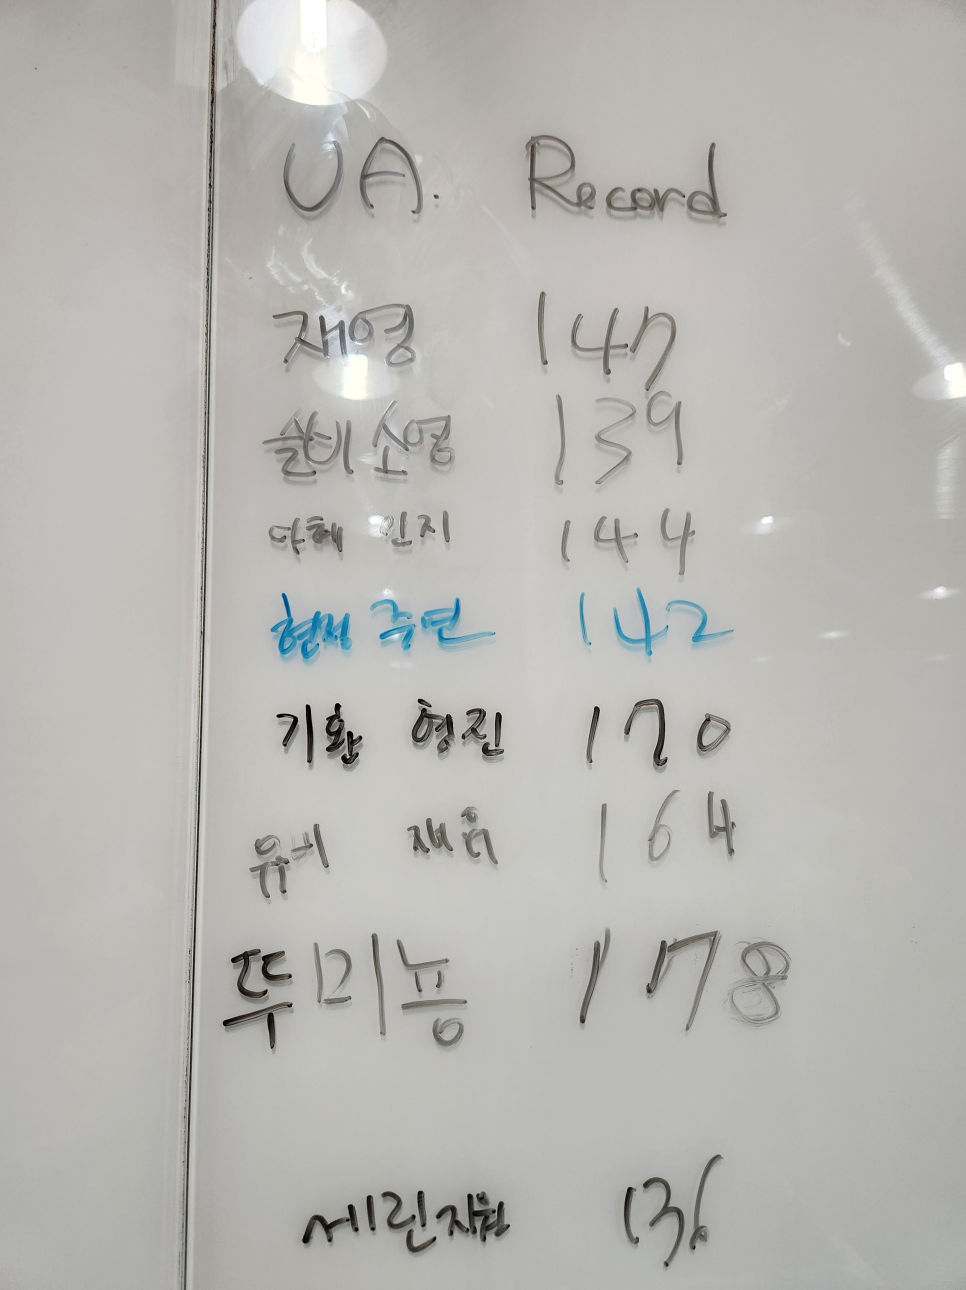 UA. Record
재영 147
솔비 소영 139
다혜 인지 144
현정 주연 142
기환 형진 170
유기 재유 164
뚜미뇽 178
세린 지원 136